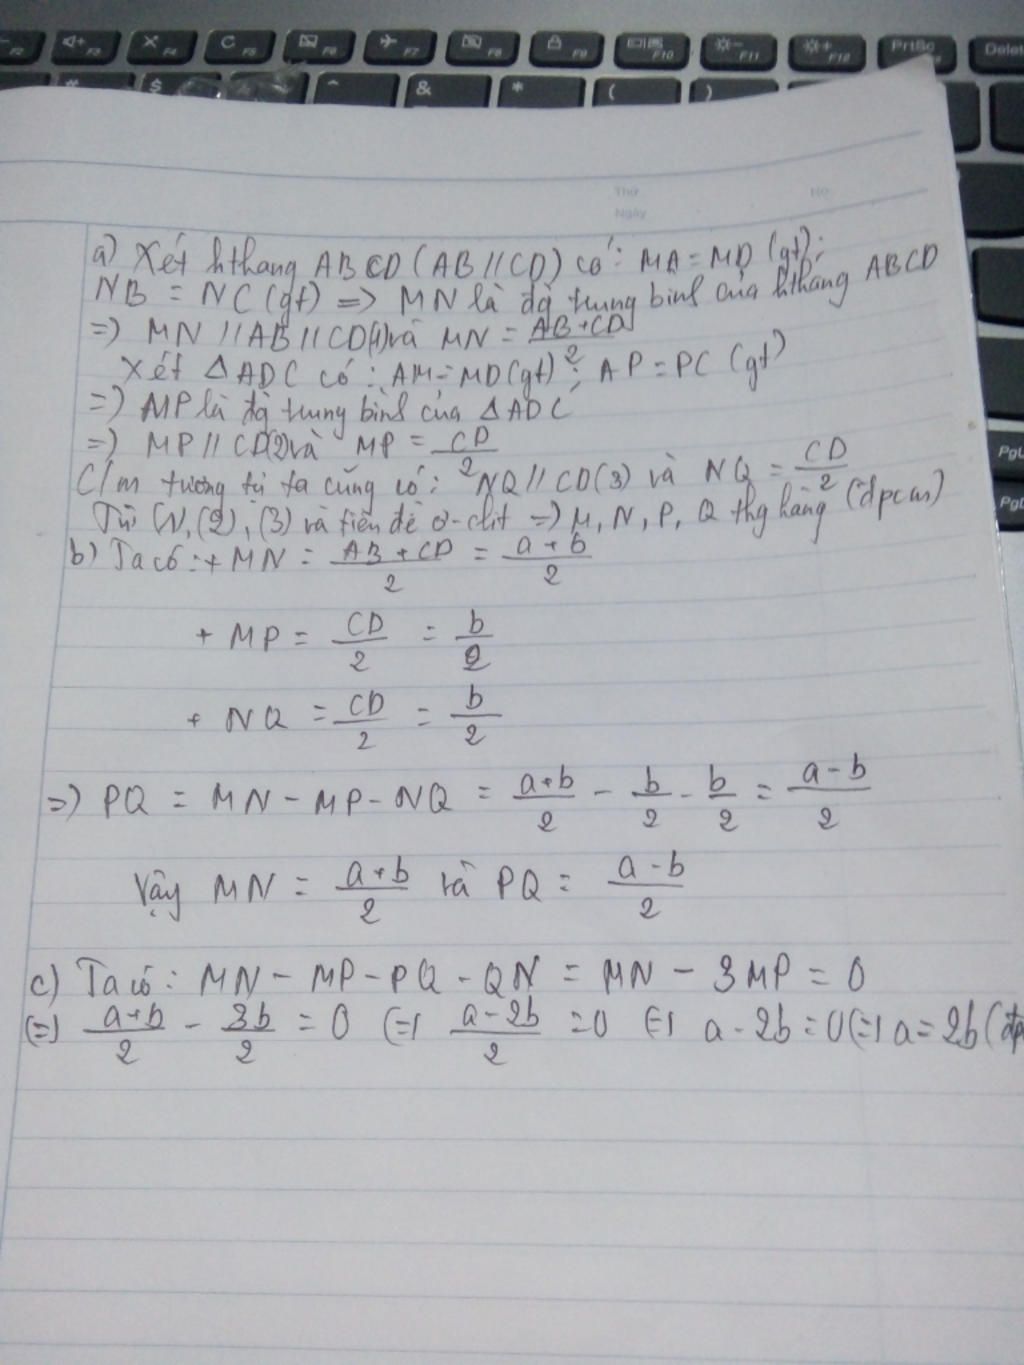 F2 F3 F4 F5 F6 F7 F8 F9 F10 F11 F12 PrtSc Delete
$ ^ & * ( )
Thứ
No
Ngày
PgU
PgD
a) Xét hthang ABCD (AB // CD) có: MA = MD (gt);
NB = NC (gt) => MN là đg trung bình của hthang ABCD
=) MN // AB // CD(1) và MN = \frac{AB+CD}{2}
Xét ΔADC có: AM = MD (gt); AP = PC (gt)
=) MP là đg trung bình của ΔADC
=) MP // CD(2) và MP = \frac{CD}{2}
C/m tương tự ta cũng có: NQ // CD (3) và NQ = \frac{CD}{2}
Từ (1), (2), (3) và tiên đề ơ-clit => M, N, P, Q thg hàng (đpcm)
b) Ta có: + MN = \frac{AB+CD}{2} = \frac{a+b}{2}
+ MP = \frac{CD}{2} = \frac{b}{2}
+ NQ = \frac{CD}{2} = \frac{b}{2}
=) PQ = MN - MP - NQ = \frac{a+b}{2} - \frac{b}{2} - \frac{b}{2} = \frac{a-b}{2}
Vậy MN = \frac{a+b}{2} và PQ = \frac{a-b}{2}
c) Ta có: MN - MP - PQ - QN = MN - 3MP = 0
(=) \frac{a+b}{2} - \frac{3b}{2} = 0 (=) \frac{a-2b}{2} = 0 (=) a - 2b = 0 (=) a = 2b (đp